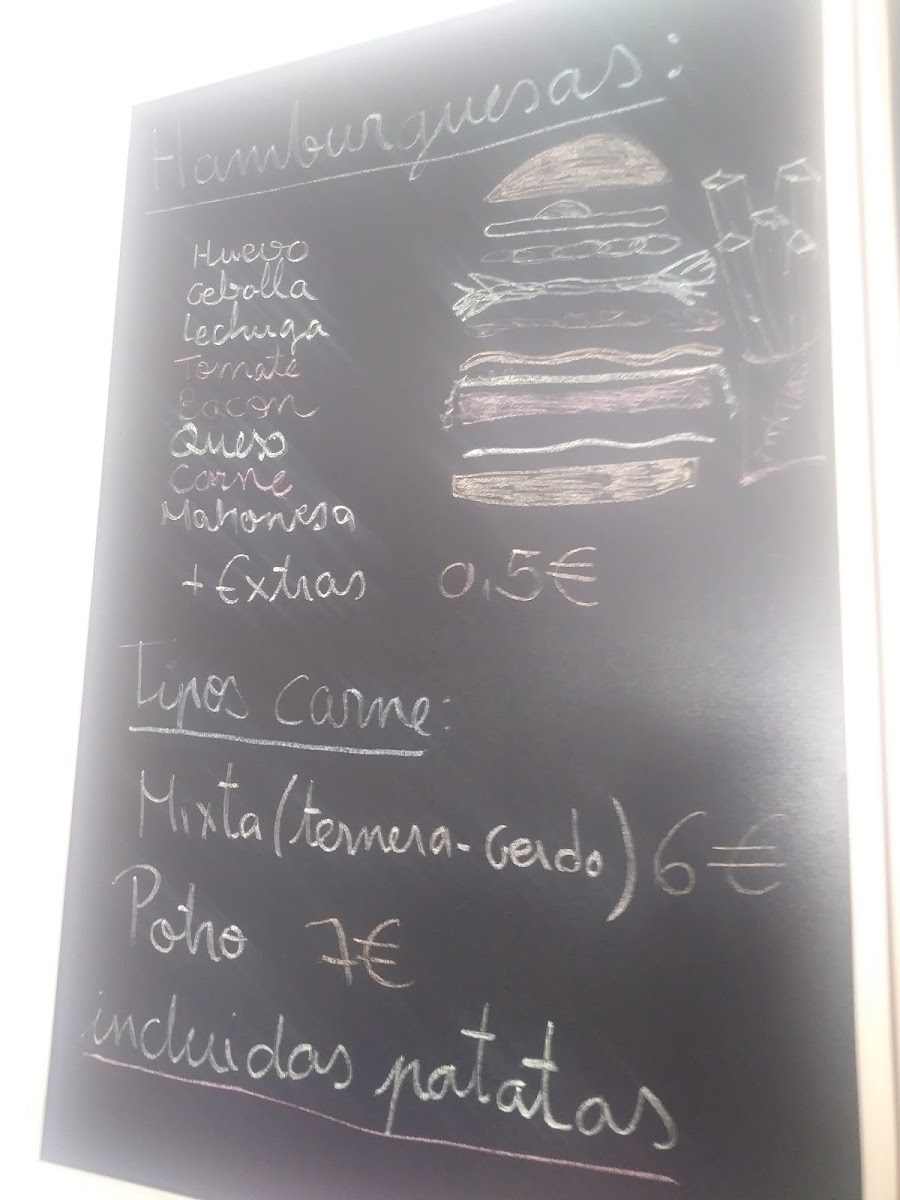 Hamburguesas:
Huevo
Cebolla
Lechuga
Tomate
Bacon
Queso
Carne
Mahonesa
+ Extras 0,5€
Tipos carne:
Mixta (ternera-Cerdo) 6€
Potro 7€
incluidas patatas